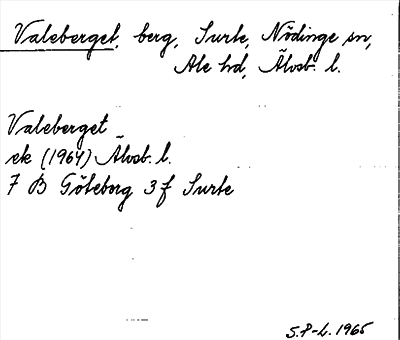 Valeberget, berg, Surte, Nödinge sn,
Ale hd, Älvsb. l.
Valeberget
ek (1964) Älvsb. l.
7 B Göteborg 3 f Surte
S.P-L. 1965